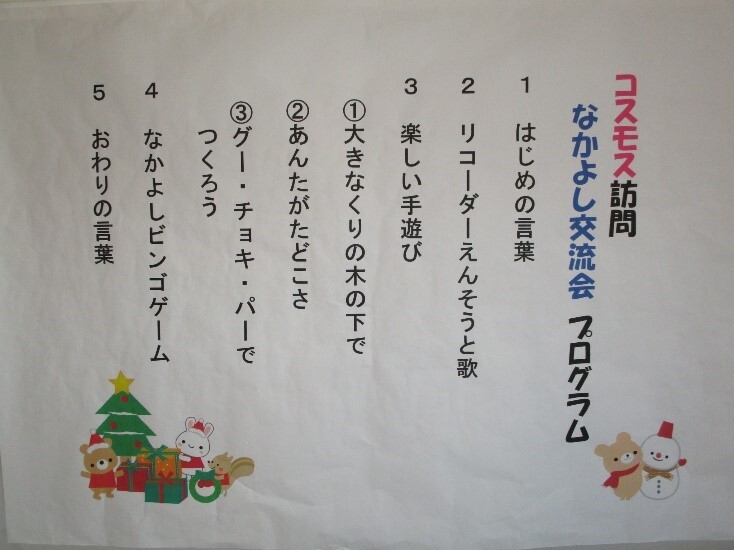 コスモス訪問
なかよし交流会 プログラム
1 はじめの言葉
2 リコーダーえんそうと歌
3 楽しい手遊び
①大きなくりの木の下で
②あんたがたどこさ
③グー・チョキ・パーで
つくろう
4 なかよしビンゴゲーム
5 おわりの言葉